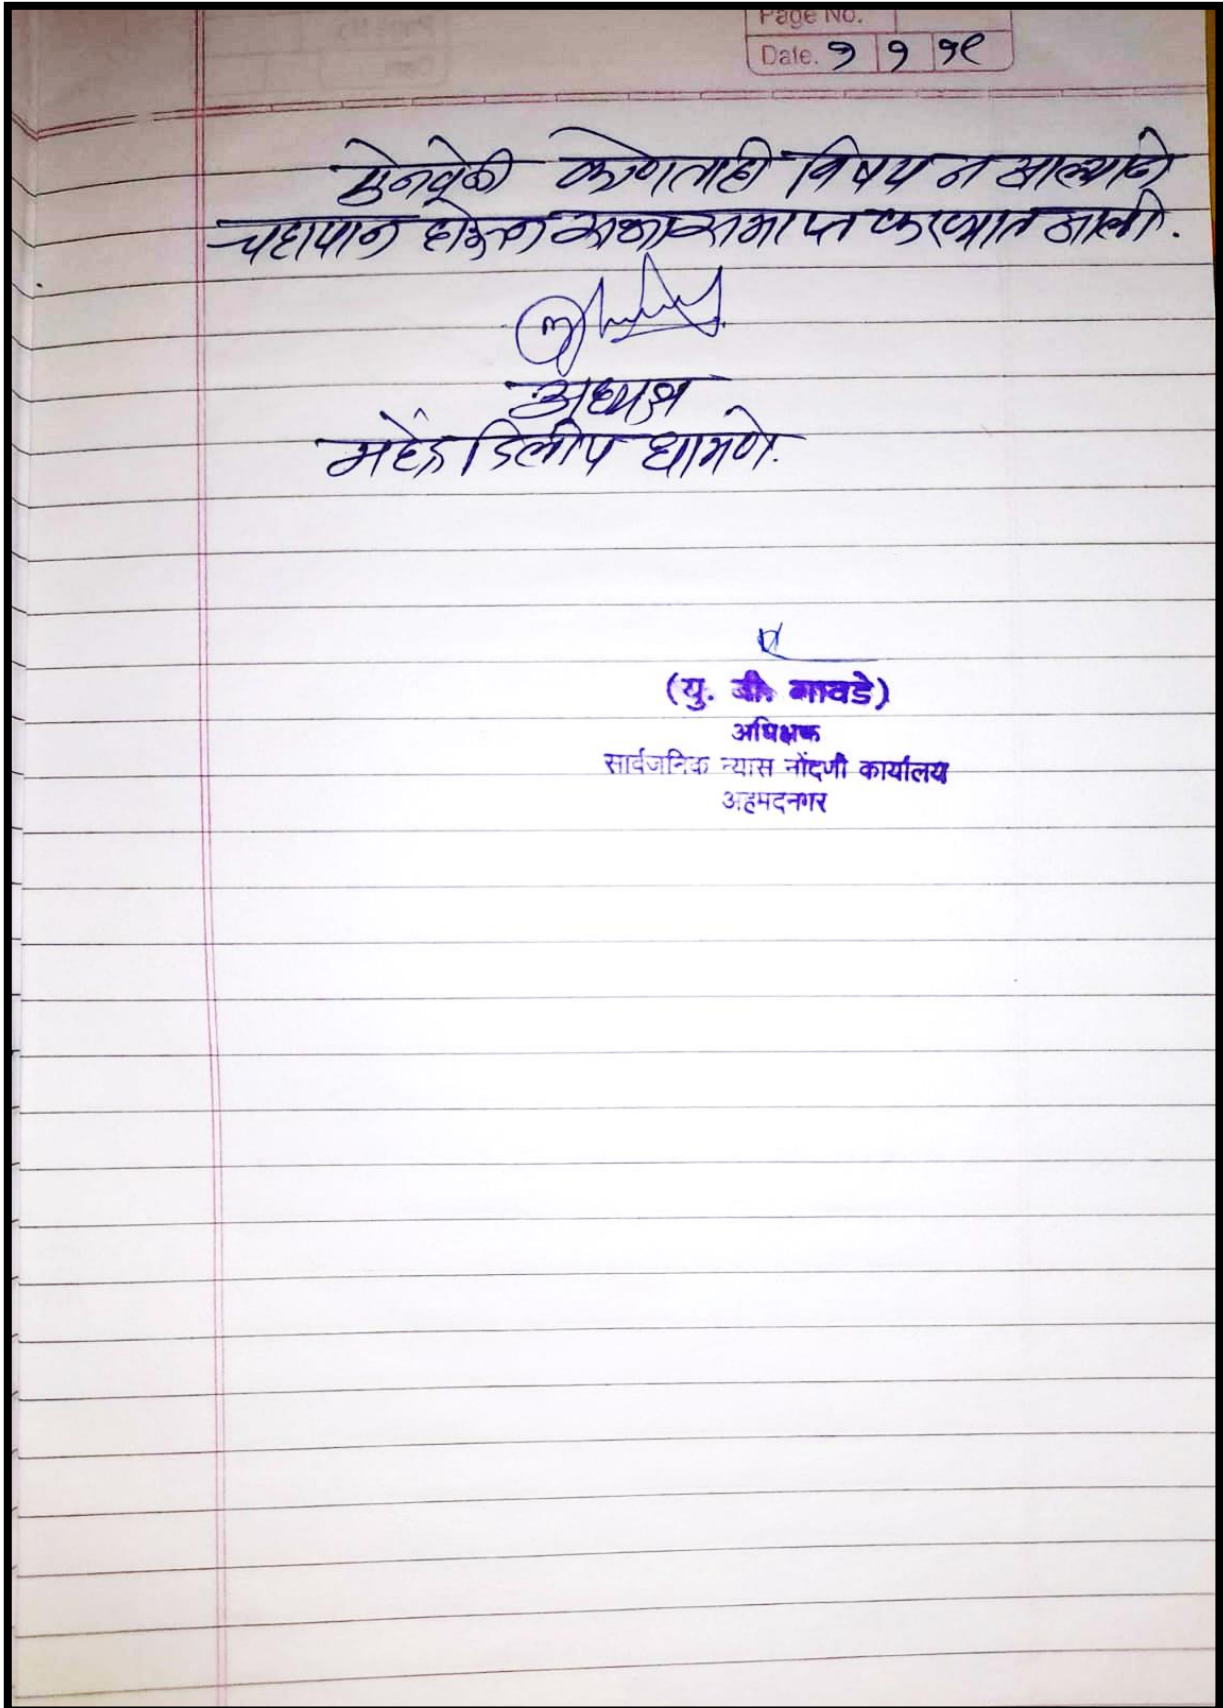 Page No.
Date. ७ ९ १९
ऐनवेळी कोणताही विषय न आल्याने
चहापान होऊन सभा समाप्त करण्यात आली.
अध्यक्ष
महेंद्र दिलीप धामणे.
(यु. बी. गावडे)
अधिक्षक
सार्वजनिक न्यास नोंदणी कार्यालय
अहमदनगर